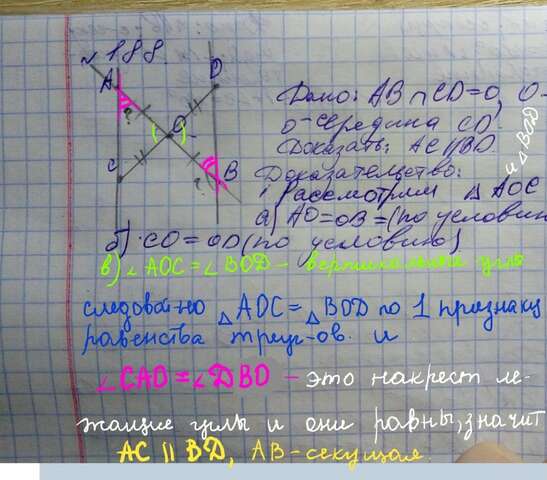 № 188.
A
D
O
C
B
Дано: AB ∩ CD = O, O -
O - середина CD
Доказать: AC ∥ BD
Доказательство:
1 Рассмотрим △ AOC и △ BOD
а) AO = OB = (по условию
б) CO = OD (по условию)
в) ∠ AOC = ∠ BOD - вертикальные углы
следоват-но △ AOC = △ BOD по 1 признаку
равенства треуг-ов. и
∠CAO = ∠DBO - это накрест ле-
жащие углы и они равны, значит
AC ∥ BD, AB - секущая.